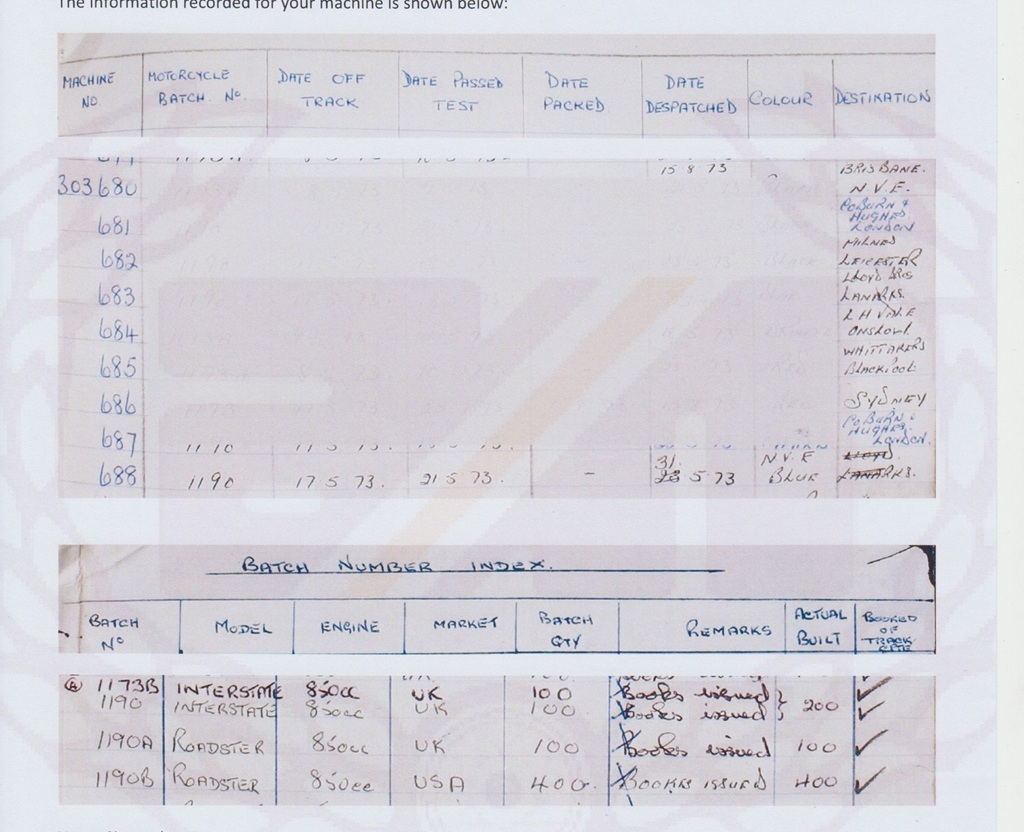 The information recorded for your machine is shown below:
MACHINE NO. MOTORCYCLE BATCH No. DATE OFF TRACK DATE PASSED TEST DATE PACKED DATE DESPATCHED COLOUR DESTINATION
15 8 73 BRISBANE.
303680 N.V.E.
681 POBURN & HUGHES LONDON
682 MILNES LEICESTER
683 LLOYD BRIS LANARKS.
684
685 WHITTAKERS BLACKPOOL
686 SYDNEY
687 POBURN & HUGHES. LONDON.
688 1190 17 5 73. 21 5 73. - 31. 5 73 N.V.E BLUE LANARKS.
BATCH NUMBER INDEX.
BATCH No MODEL ENGINE MARKET BATCH QTY REMARKS ACTUAL BUILT BOOKED OF TRACK
1173B INTERSTATE 850cc UK 100 Books issued
1190 INTERSTATE 850cc UK 100 Books issued 200
1190A ROADSTER 850cc UK 100 Books issued 100
1190B ROADSTER 850cc USA 400 BOOKS ISSUED 400